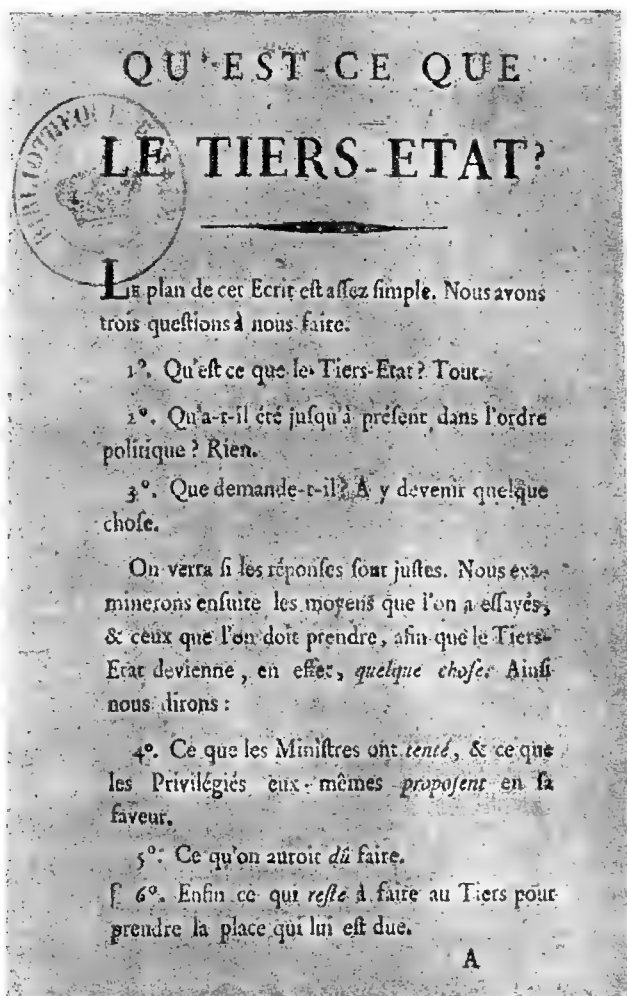 QU'EST-CE QUE
LE TIERS-ETAT?
LE plan de cet Ecrit eſt aſſez ſimple. Nous avons
trois queſtions à nous faire.
1°. Qu'eſt ce que le Tiers-Etat? Tout.
2°. Qu'a-t-il été juſqu'à préſent dans l'ordre
politique? Rien.
3°. Que demande-t-il? A y devenir quelque
choſe.
On verra ſi les réponſes ſont juſtes. Nous exa-
minerons enſuite les moyens que l'on a eſſayés,
& ceux que l'on doit prendre, afin que le Tiers-
Etat devienne, en effet, quelque choſe. Ainſi
nous dirons :
4°. Ce que les Miniſtres ont tenté, & ce que
les Privilégiés eux-mêmes propoſent en ſa
faveur.
5°. Ce qu'on auroit dû faire.
6°. Enfin ce qui reſte à faire au Tiers pour
prendre la place qui lui eſt due.
A